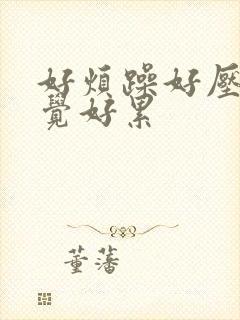 好煩躁好壓
覺好累
董蕃